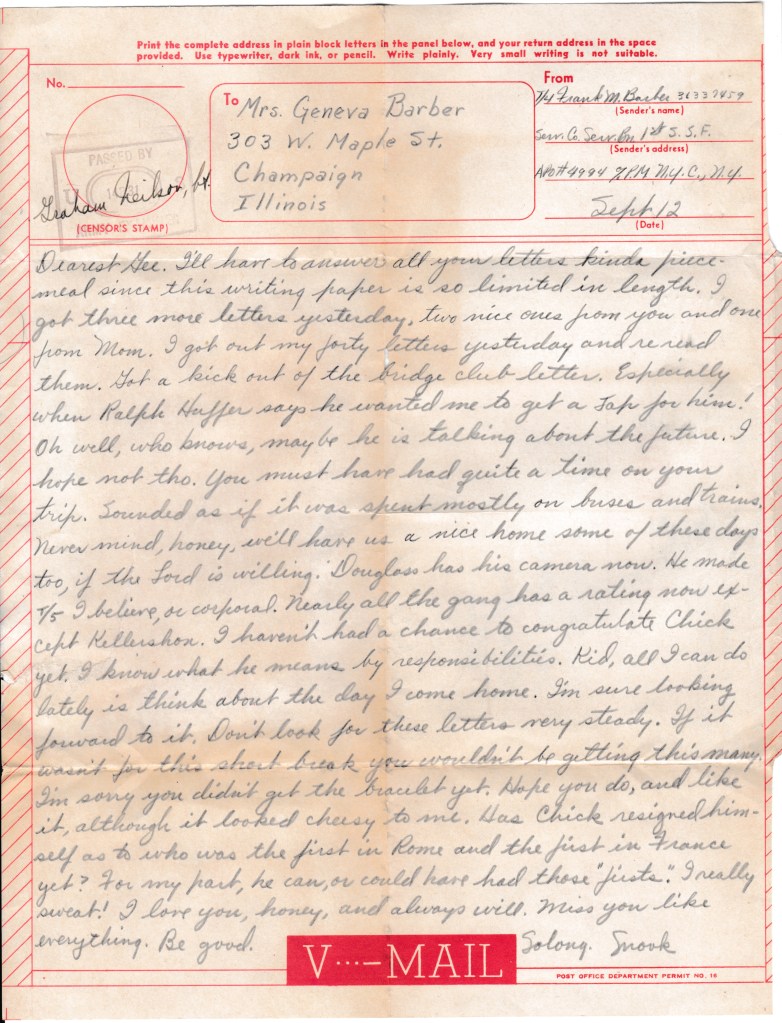 Print the complete address in plain block letters in the panel below, and your return address in the space
provided. Use typewriter, dark ink, or pencil. Write plainly. Very small writing is not suitable.
No.
PASSED BY
Graham Neilson, Lt.
(CENSOR'S STAMP)
To Mrs. Geneva Barber
303 W. Maple St.
Champaign
Illinois
From
T/4 Frank M. Barber 36337459
(Sender's name)
Serv. Co. Serv. Bn 1st S.S.F.
(Sender's address)
APO# 4994 % PM N.Y.C., N.Y.
Sept 12
(Date)
Dearest Gee. I'll have to answer all your letters kinda piece-
meal since this writing paper is so limited in length. I
got three more letters yesterday, two nice ones from you and one
from Mom. I got out my forty letters yesterday and re read
them. Got a kick out of the bridge club letter. Especially
when Ralph Huffer says he wanted me to get a Jap for him!
Oh well, who knows, maybe he is talking about the future. I
hope not tho. You must have had quite a time on your
trip. Sounded as if it was spent mostly on buses and trains.
Never mind, honey, we'll have us a nice home some of these days
too, if the Lord is willing. Douglass has his camera now. He made
T/5 I believe, or corporal. Nearly all the gang has a rating now ex-
cept Kellershon. I haven't had a chance to congratulate Chick
yet. I know what he means by responsibilities. Kid, all I can do
lately is think about the day I come home. I'm sure looking
forward to it. Don't look for these letters very steady. If it
wasn't for this short break you wouldn't be getting this many.
I'm sorry you didn't get the bracelet yet. Hope you do, and like
it, although it looked cheesy to me. Has Chick resigned him-
self as to who was the first in Rome and the first in France
yet? For my part, he can, or could have had those "firsts". I really
sweat! I love you, honey, and always will. Miss you like
everything. Be good. Solong. Snook
V···—MAIL
POST OFFICE DEPARTMENT PERMIT NO. 16